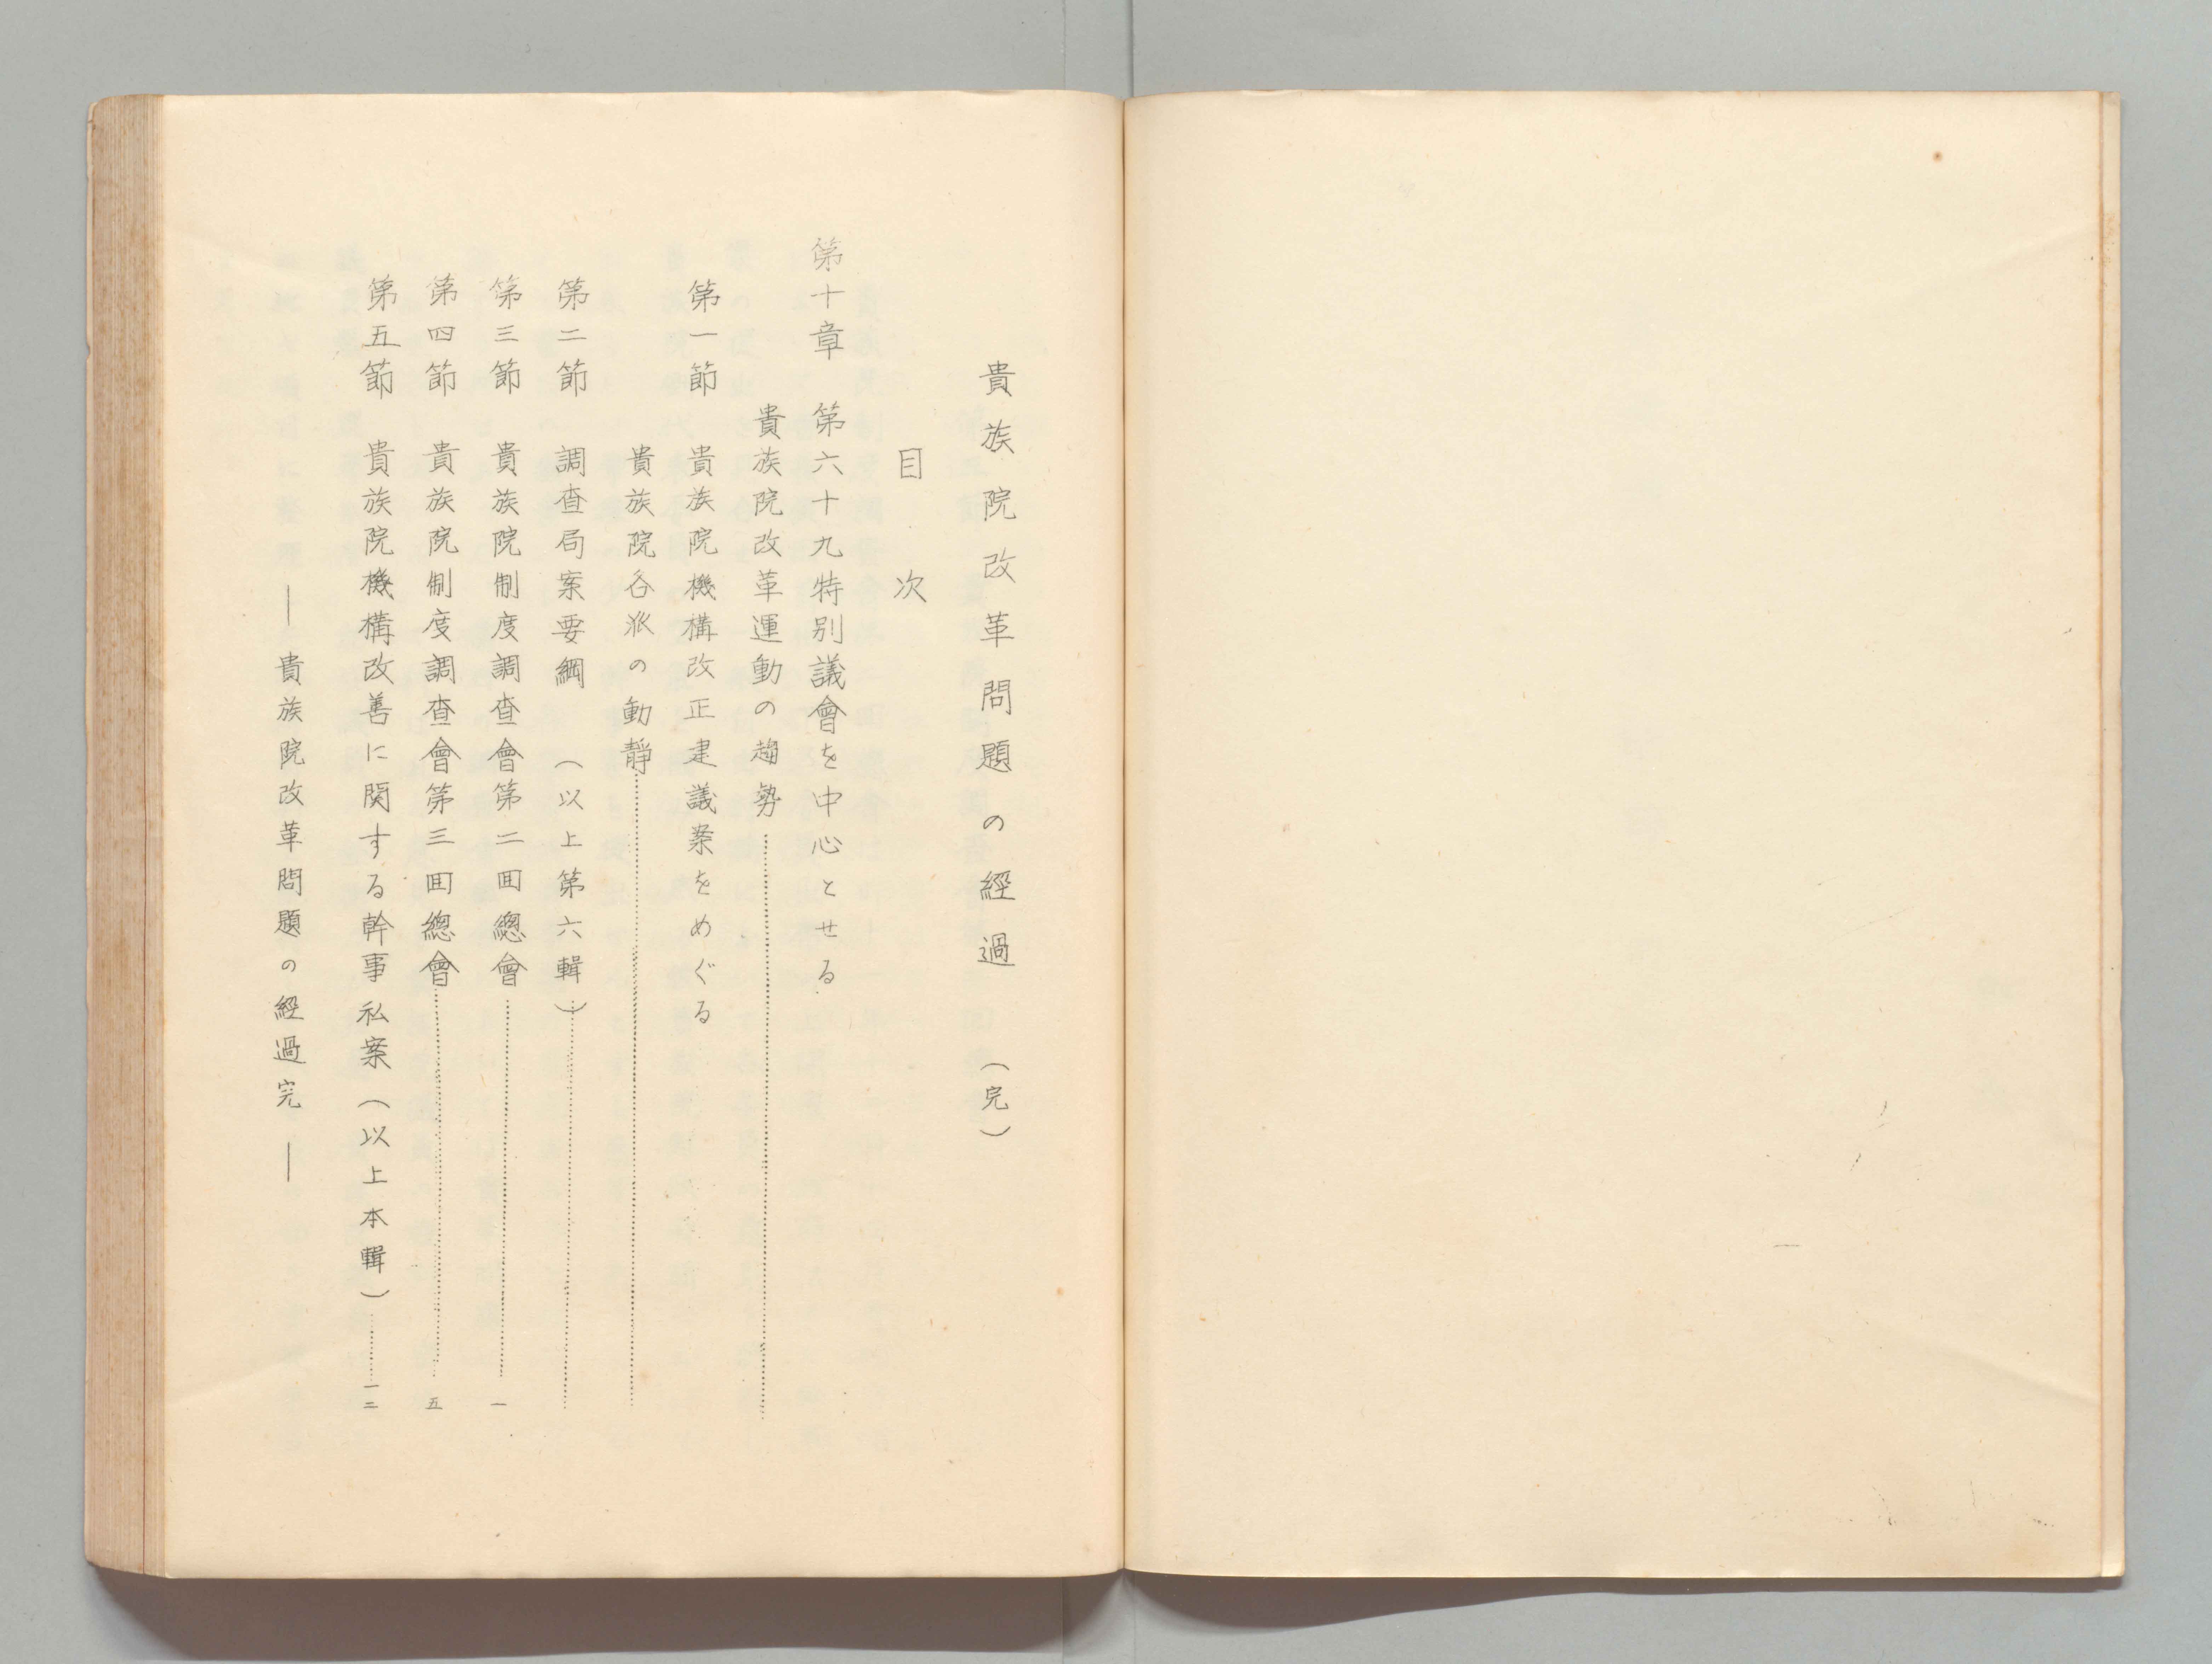 貴族院改革問題の經過　（完）
目次
第十章　第六十九特別議會を中心とせる
貴族院改革運動の趨勢……
第一節　貴族院機構改正建議案をめぐる
貴族院各派の動靜……
第二節　調査局案要綱　（以上第六輯）……
第三節　貴族院制度調査會第二囬總會……一
第四節　貴族院制度調査會第三囬總會……五
第五節　貴族院機構改善に関する幹事私案（以上本輯）……一二
――貴族院改革問題の經過完――